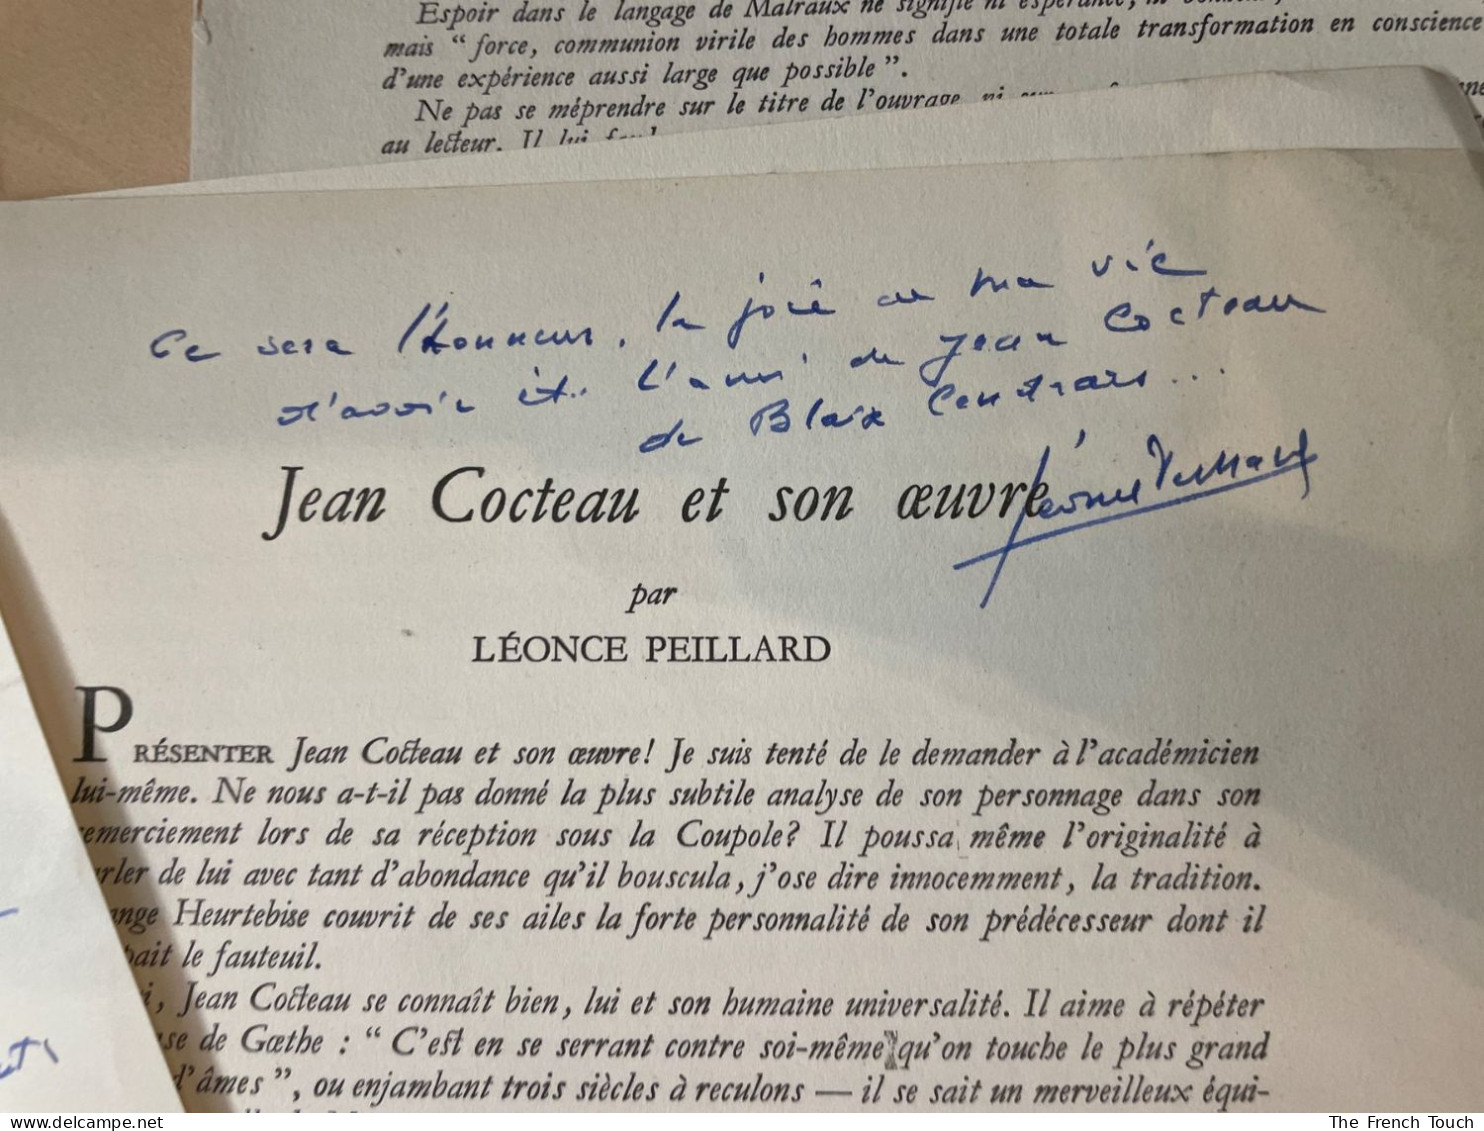 Espoir dans le langage de Malraux ne signifie ni espérance, ni
mais “ force, communion virile des hommes dans une totale transformation en conscience
d'une expérience aussi large que possible ”.
Ne pas se méprendre sur le titre de l'ouvrage, ni
au lecteur. Il lui
Ce sera l'honneur, la joie de ma vie
d'avoir été l'ami de Jean Cocteau
de Blaise Cendrars...
Léonce Peillard
Jean Cocteau et son œuvre
par
LÉONCE PEILLARD
PRÉSENTER Jean Cocteau et son œuvre! Je suis tenté de le demander à l'académicien
lui-même. Ne nous a-t-il pas donné la plus subtile analyse de son personnage dans son
remerciement lors de sa réception sous la Coupole? Il poussa même l'originalité à
parler de lui avec tant d'abondance qu'il bouscula, j'ose dire innocemment, la tradition.
ange Heurtebise couvrit de ses ailes la forte personnalité de son prédécesseur dont il
pait le fauteuil.
i, Jean Cocteau se connaît bien, lui et son humaine universalité. Il aime à répéter
se de Gœthe : “ C'est en se serrant contre soi-même qu'on touche le plus grand
d'âmes ”, ou enjambant trois siècles à reculons — il se sait un merveilleux équi-
The French Touch